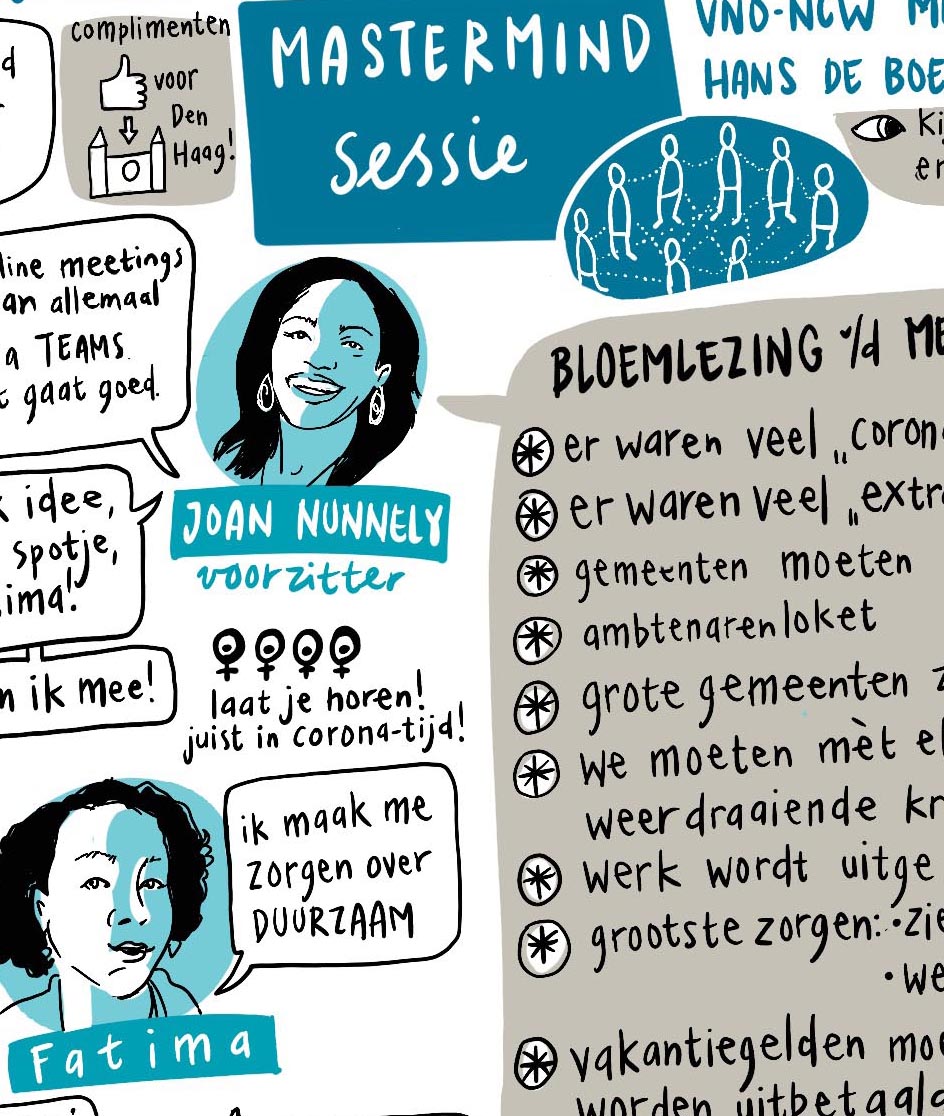 complimenten
voor
Den
Haag!
MASTERMIND
sessie
VNO-NCW
HANS DE BOE
line meetings
an allemaal
a TEAMS.
t gaat goed.
k idee,
spotje,
ima!
n ik mee!
JOAN NUNNELY
voorzitter
laat je horen!
juist in corona-tijd!
ik maak me
zorgen over
DUURZAAM
Fatima
BLOEMLEZING v/d ME
er waren veel „coron
er waren veel „extr
gemeenten moeten
ambtenarenloket
grote gemeenten z
we moeten mèt el
weerdraaiende kr
werk wordt uitge
grootste zorgen: • zie
• we
vakantiegelden moe
worden uitbetaald